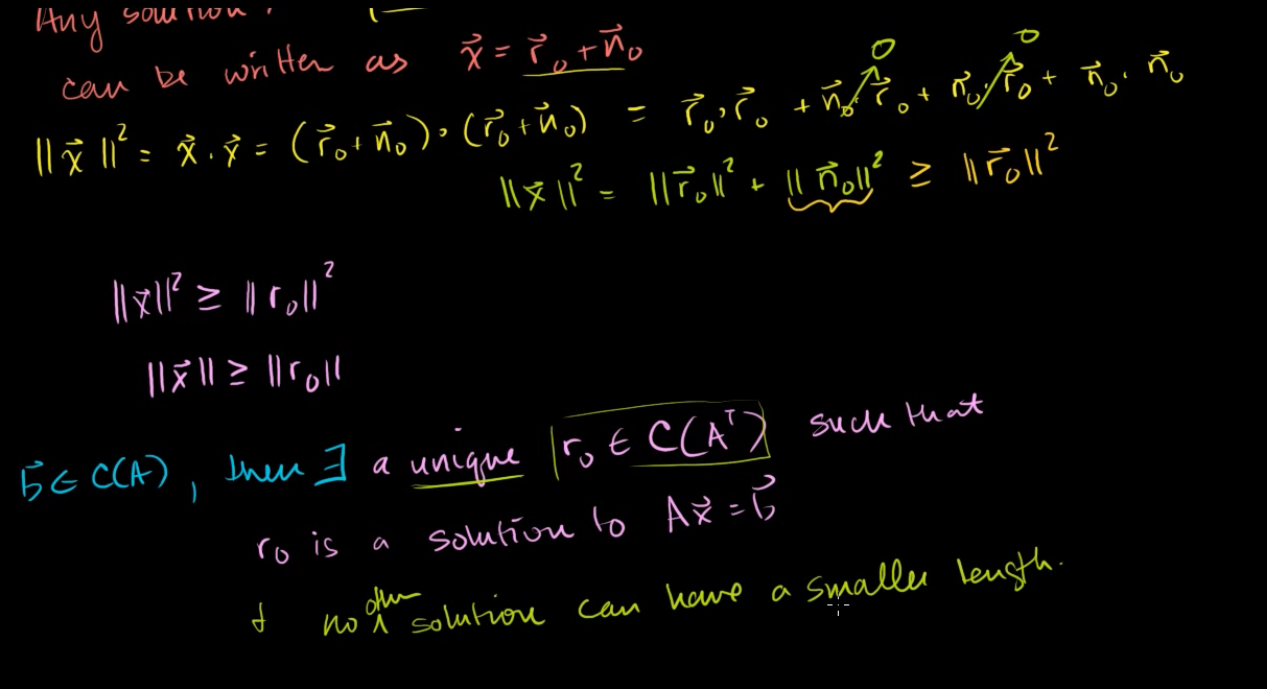 Any solution,
can be written as x⃗ = r⃗₀ + n⃗₀
||x⃗||² = x⃗ · x⃗ = (r⃗₀ + n⃗₀) · (r⃗₀ + n⃗₀) = r⃗₀ · r⃗₀ + n⃗₀ · r⃗₀ + n⃗₀ · r⃗₀ + n⃗₀ · n⃗₀
0 0
||x⃗||² = ||r⃗₀||² + ||n⃗₀||² ≥ ||r⃗₀||²
||x⃗||² ≥ ||r₀||²
||x⃗|| ≥ ||r₀||
b⃗ ∈ C(A), then ∃ a unique r₀ ∈ C(Aᵀ) such that
r₀ is a solution to Ax⃗ = b⃗
& no other solution can have a smaller length.